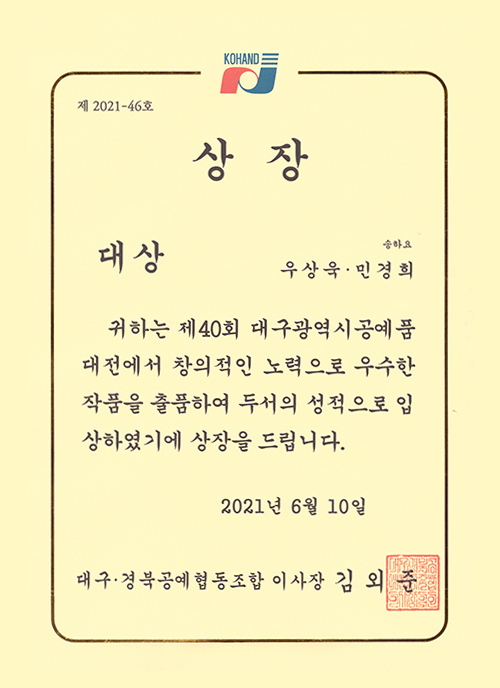 KOHAND
제 2021-46호
상 장
대상
송하요
우상욱·민경희
귀하는 제40회 대구광역시공예품
대전에서 창의적인 노력으로 우수한
작품을 출품하여 두서의 성적으로 입
상하였기에 상장을 드립니다.
2021년 6월 10일
대구·경북공예협동조합 이사장 김 외 준